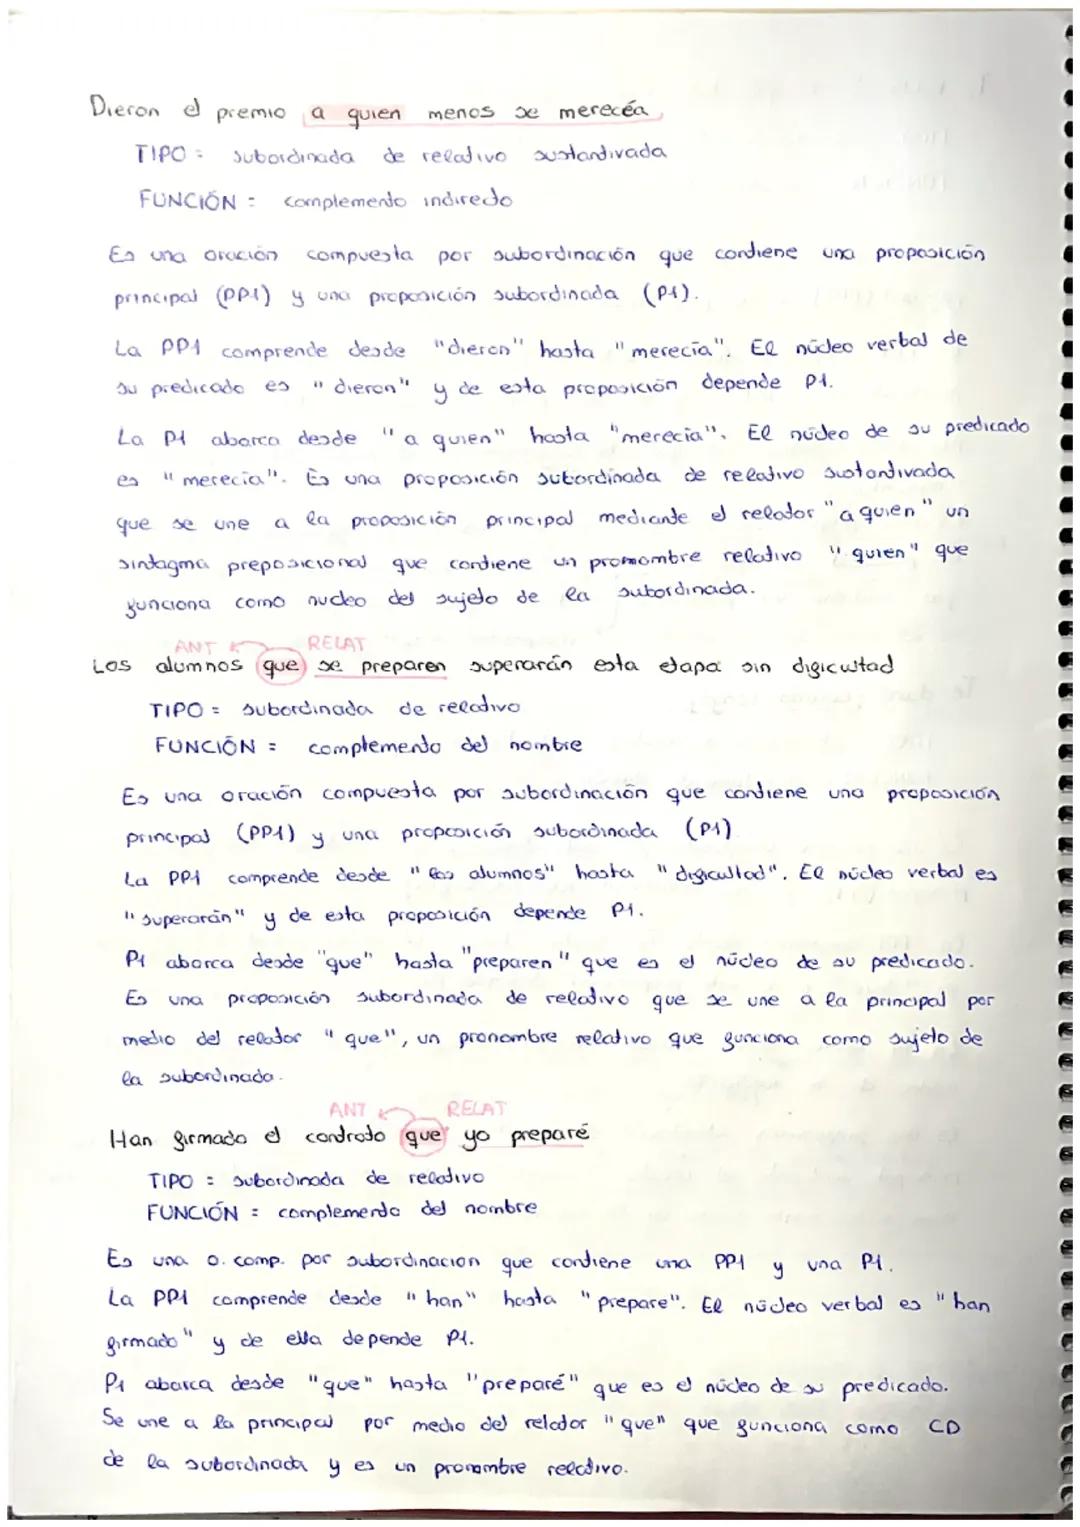 Dieron el premio a quien menos se merecéa
TIPO: subordinada de relativo sustantivada
FUNCIÓN: complemento indirecto
Es una oración compuesta por subordinación que contiene una proposición
principal (PP1) y una proposición subordinada (P1).
La PP1 comprende desde "dieron" hasta "merecía". El núcleo verbal de
su predicado es "dieron" y de esta proposición depende P1.
La P1 abarca desde "a quien" hasta "merecia". El núcleo de su predicado
es "merecia". Es una proposición subordinada de relativo sustantivada
que se une a la proposición principal mediante el relator "a quien" un
sintagma preposicional que contiene un pronombre relativo "quien" que
funciona como nucleo del sujeto de la subordinada.
ANT RELAT
Los alumnos que se preparen superarán esta etapa sin dificultad
TIPO = subordinada de relativo
FUNCIÓN = complemento del nombre
Es una oración compuesta por subordinación que contiene una proposición
principal (PP1) y una proposición subordinada (P1)
La PP1 comprende desde "los alumnos" hasta "dificultad". El núcleo verbal es
"superarán" y de esta proposición depende P1.
P1 abarca desde "que" hasta "preparen" que es el núcleo de su predicado.
Es una proposición subordinada de relativo que se une a la principal por
medio del relator "que", un pronombre relativo que funciona como sujeto de
la subordinada.
ANT RELAT
Han firmado el contrato que yo preparé
TIPO: subordinada de relativo
FUNCIÓN: complemento del nombre
Es una o. comp. por subordinacion que contiene una PP1 y una P1.
La PP1 comprende desde "han" hasta "prepare". El núcleo verbal es "han
firmado" y de ella depende P1.
P1 abarca desde "que" hasta "preparé" que es el núcleo de su predicado.
Se une a la principal por medio del relator "que" que funciona como CD
de la subordinada y es un pronombre relativo.